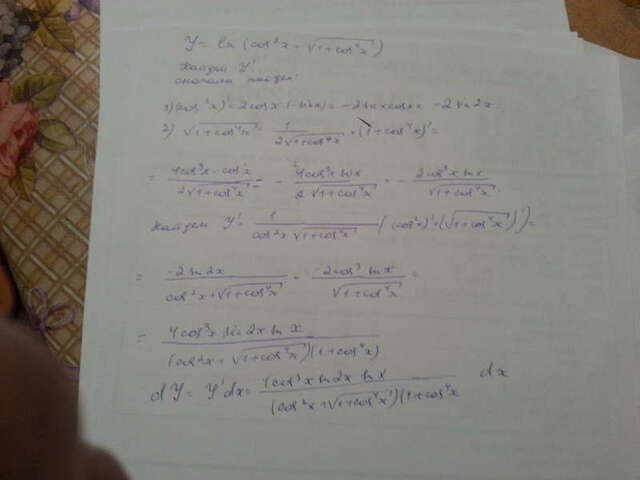 y = ln (cos²x + √1+cos⁴x)
Найдем y'
сначала найдем:
1) (cos²x)' = 2cosx·(-sinx) = -2sinx cosx = -2sin2x
2) √1+cos⁴x = 1/(2√1+cos⁴x) · (1+cos⁴x)' =
= 4cos³x · cos'x / 2√1+cos⁴x = - 4cos³x sinx / 2√1+cos⁴x = - 2cos³x sinx / √1+cos⁴x
Найдем y' = 1 / cos²x · √1+cos⁴x ((cos²x)' + (√1+cos⁴x)') =
= -2sin2x / cos²x+√1+cos⁴x · -2cos³x sinx / √1+cos⁴x =
= 4cos³x sin2x sinx / (cos²x + √1+cos⁴x)(1+cos⁴x)
dy = y'dx = 4cos³x sin2x sinx / (cos²x+√1+cos⁴x)(1+cos⁴x dx